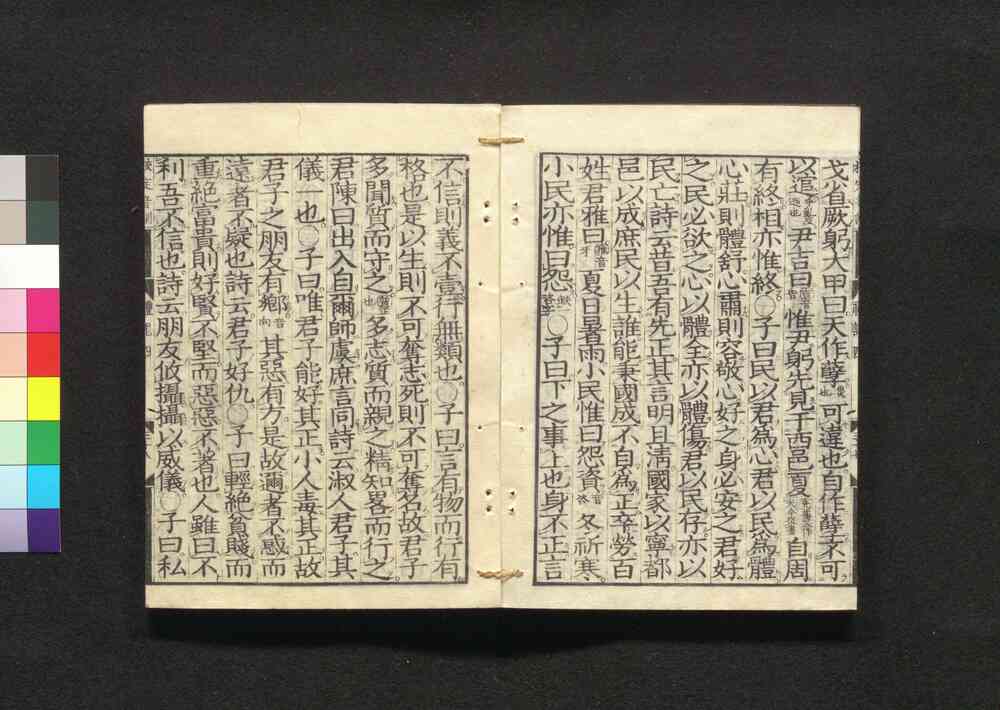 戈省厥躬大甲曰天作孽可違也自作孽不可
以逭尹吉曰惟尹躬先見于西邑夏自周
有終相亦惟終〇子曰民以君爲心君以民爲體
心莊則體舒心肅則容敬心好之身必安之君好
之民必欲之心以體全亦以體傷君以民存亦以
民亡詩云昔吾有先正其言明且清國家以寧都
邑以成庶民以生誰能秉國成不自爲正卒勞百
姓君雅曰夏日暑雨小民惟曰怨資冬祈寒
小民亦惟曰怨〇子曰下之事上也身不正言
不信則義不壹行無類也〇子曰言有物而行有
格也是以生則不可奪志死則不可奪名故君子
多聞質而守之多志質而親之精知畧而行之
君陳曰出入自爾師虞庶言同詩云淑人君子其
儀一也〇子曰唯君子能好其正小人毒其正故
君子之朋友有鄉其惡有方是故邇者不惑而
遠者不疑也詩云君子好仇〇子曰輕絶貧賤而
重絶富貴則好賢不堅而惡惡不著也人雖曰不
利吾不信也詩云朋友攸攝攝以威儀〇子曰私